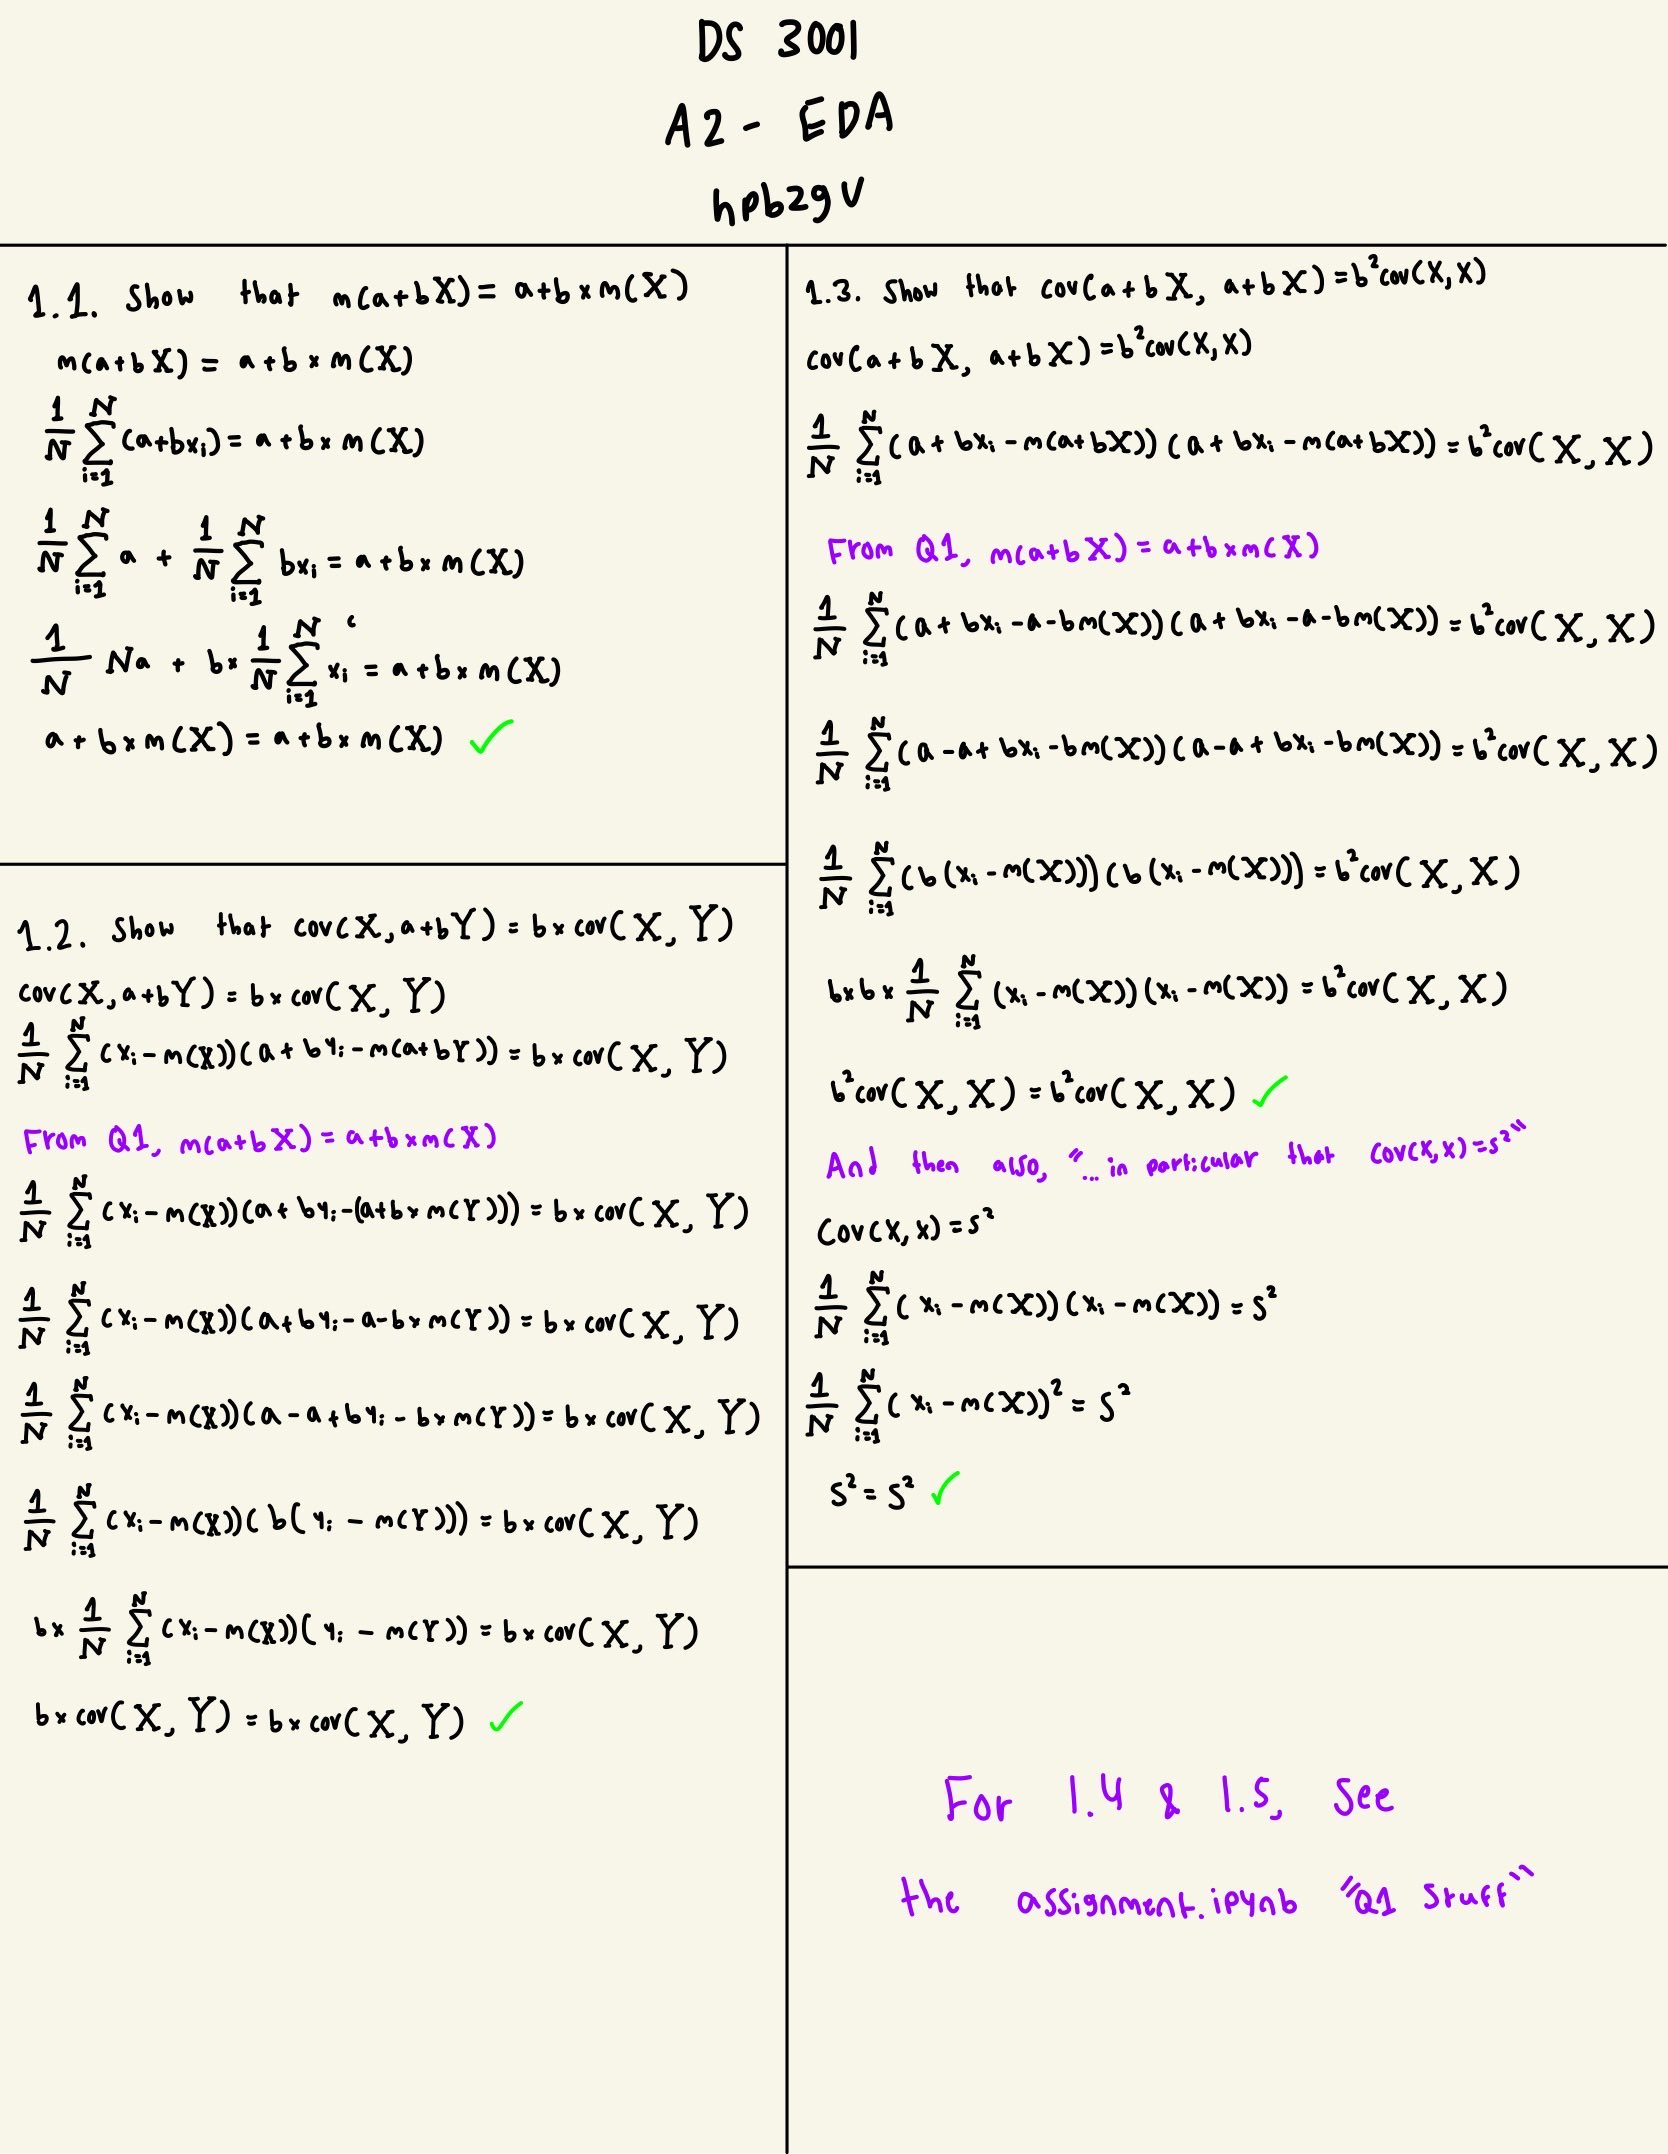 DS 3001
A2 - EDA
hpb2gv
1.1. Show that m(a+bX) = a+b×m(X)
m(a+bX) = a+b×m(X)
1/N ∑_{i=1}^{N} (a+bxᵢ) = a+b×m(X)
1/N ∑_{i=1}^{N} a + 1/N ∑_{i=1}^{N} bxᵢ = a+b×m(X)
1/N Na + b× 1/N ∑_{i=1}^{N} xᵢ = a+b×m(X)
a+b×m(X) = a+b×m(X) ✓
1.2. Show that cov(X, a+bY) = b×cov(X, Y)
cov(X, a+bY) = b×cov(X, Y)
1/N ∑_{i=1}^{N} (xᵢ-m(X))(a+byᵢ-m(a+bY)) = b×cov(X, Y)
From Q1, m(a+bX) = a+b×m(X)
1/N ∑_{i=1}^{N} (xᵢ-m(X))(a+byᵢ-(a+b×m(Y))) = b×cov(X, Y)
1/N ∑_{i=1}^{N} (xᵢ-m(X))(a+byᵢ-a-b×m(Y)) = b×cov(X, Y)
1/N ∑_{i=1}^{N} (xᵢ-m(X))(a-a+byᵢ-b×m(Y)) = b×cov(X, Y)
1/N ∑_{i=1}^{N} (xᵢ-m(X))(b(yᵢ-m(Y))) = b×cov(X, Y)
b× 1/N ∑_{i=1}^{N} (xᵢ-m(X))(yᵢ-m(Y)) = b×cov(X, Y)
b×cov(X, Y) = b×cov(X, Y) ✓
1.3. Show that cov(a+bX, a+bX) = b²cov(X,X)
cov(a+bX, a+bX) = b²cov(X,X)
1/N ∑_{i=1}^{N} (a+bxᵢ-m(a+bX))(a+bxᵢ-m(a+bX)) = b²cov(X, X)
From Q1, m(a+bX) = a+b×m(X)
1/N ∑_{i=1}^{N} (a+bxᵢ-a-bm(X))(a+bxᵢ-a-bm(X)) = b²cov(X, X)
1/N ∑_{i=1}^{N} (a-a+bxᵢ-bm(X))(a-a+bxᵢ-bm(X)) = b²cov(X, X)
1/N ∑_{i=1}^{N} (b(xᵢ-m(X)))(b(xᵢ-m(X))) = b²cov(X, X)
b×b× 1/N ∑_{i=1}^{N} (xᵢ-m(X))(xᵢ-m(X)) = b²cov(X, X)
b²cov(X, X) = b²cov(X, X) ✓
And then also, "... in particular that Cov(X,X) = s²"
Cov(X,X) = s²
1/N ∑_{i=1}^{N} (xᵢ-m(X))(xᵢ-m(X)) = s²
1/N ∑_{i=1}^{N} (xᵢ-m(X))² = s²
s² = s² ✓
For 1.4 & 1.5, See
the assignment.ipynb "Q1 Stuff"